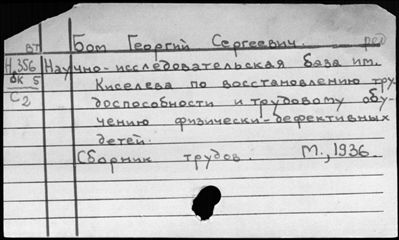 вт Бом Георгий Сергеевич. ред
Н.356 Научно-исследовательская база им.
вк 5 Киселева по восстановлению тру-
С2 доспособности и трудовому обу-
чению физически-дефективных
детей.
Сборник трудов. М., 1936.